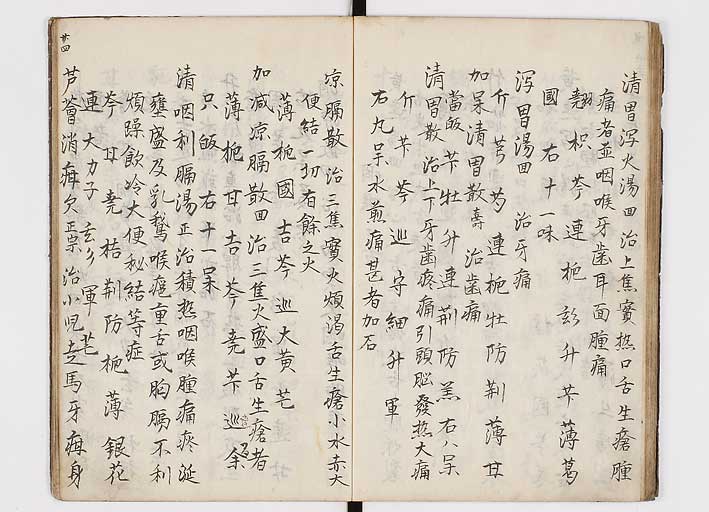 清胃瀉火湯 回 治上焦實热口舌生瘡腫
痛者並咽喉牙歯耳面腫痛
翹 枳 芩 連 梔 玄 升 芐 薄 葛
國 右十一味
瀉胃湯 回 治牙痛
介 芎 芍 連 梔 牡 防 荆 薄 甘
加味清胃散 壽 治歯痛
當 皈 芐 牡 升 連 荆 防 羌 右八味
清胃散 治上下牙歯疼痛引頭脳發热大痛
介 芐 芩 巡 守 細 升 軍
右九味水煎痛甚者加石
凉膈散 治三焦實火煩渇舌生瘡小水赤大
便結一切有餘之火
薄 梔 國 吉 芩 巡 大黄 芒
加減凉膈散 回 治三焦火盛口舌生瘡者
薄 梔 甘 吉 芩 尭 芐 巡
只 皈 右十一味
清咽利膈湯 正 治積热咽喉腫痛疼涎
壅盛及乳鵝喉痺重舌或胸膈不利
煩躁飲冷大便秘結等症
芩 甘 尭 桔 荆 防 梔 薄 銀花
連 大力子 玄 軍 芒
芦薈消疳欠 正宗 治小児走馬牙疳身
廿四